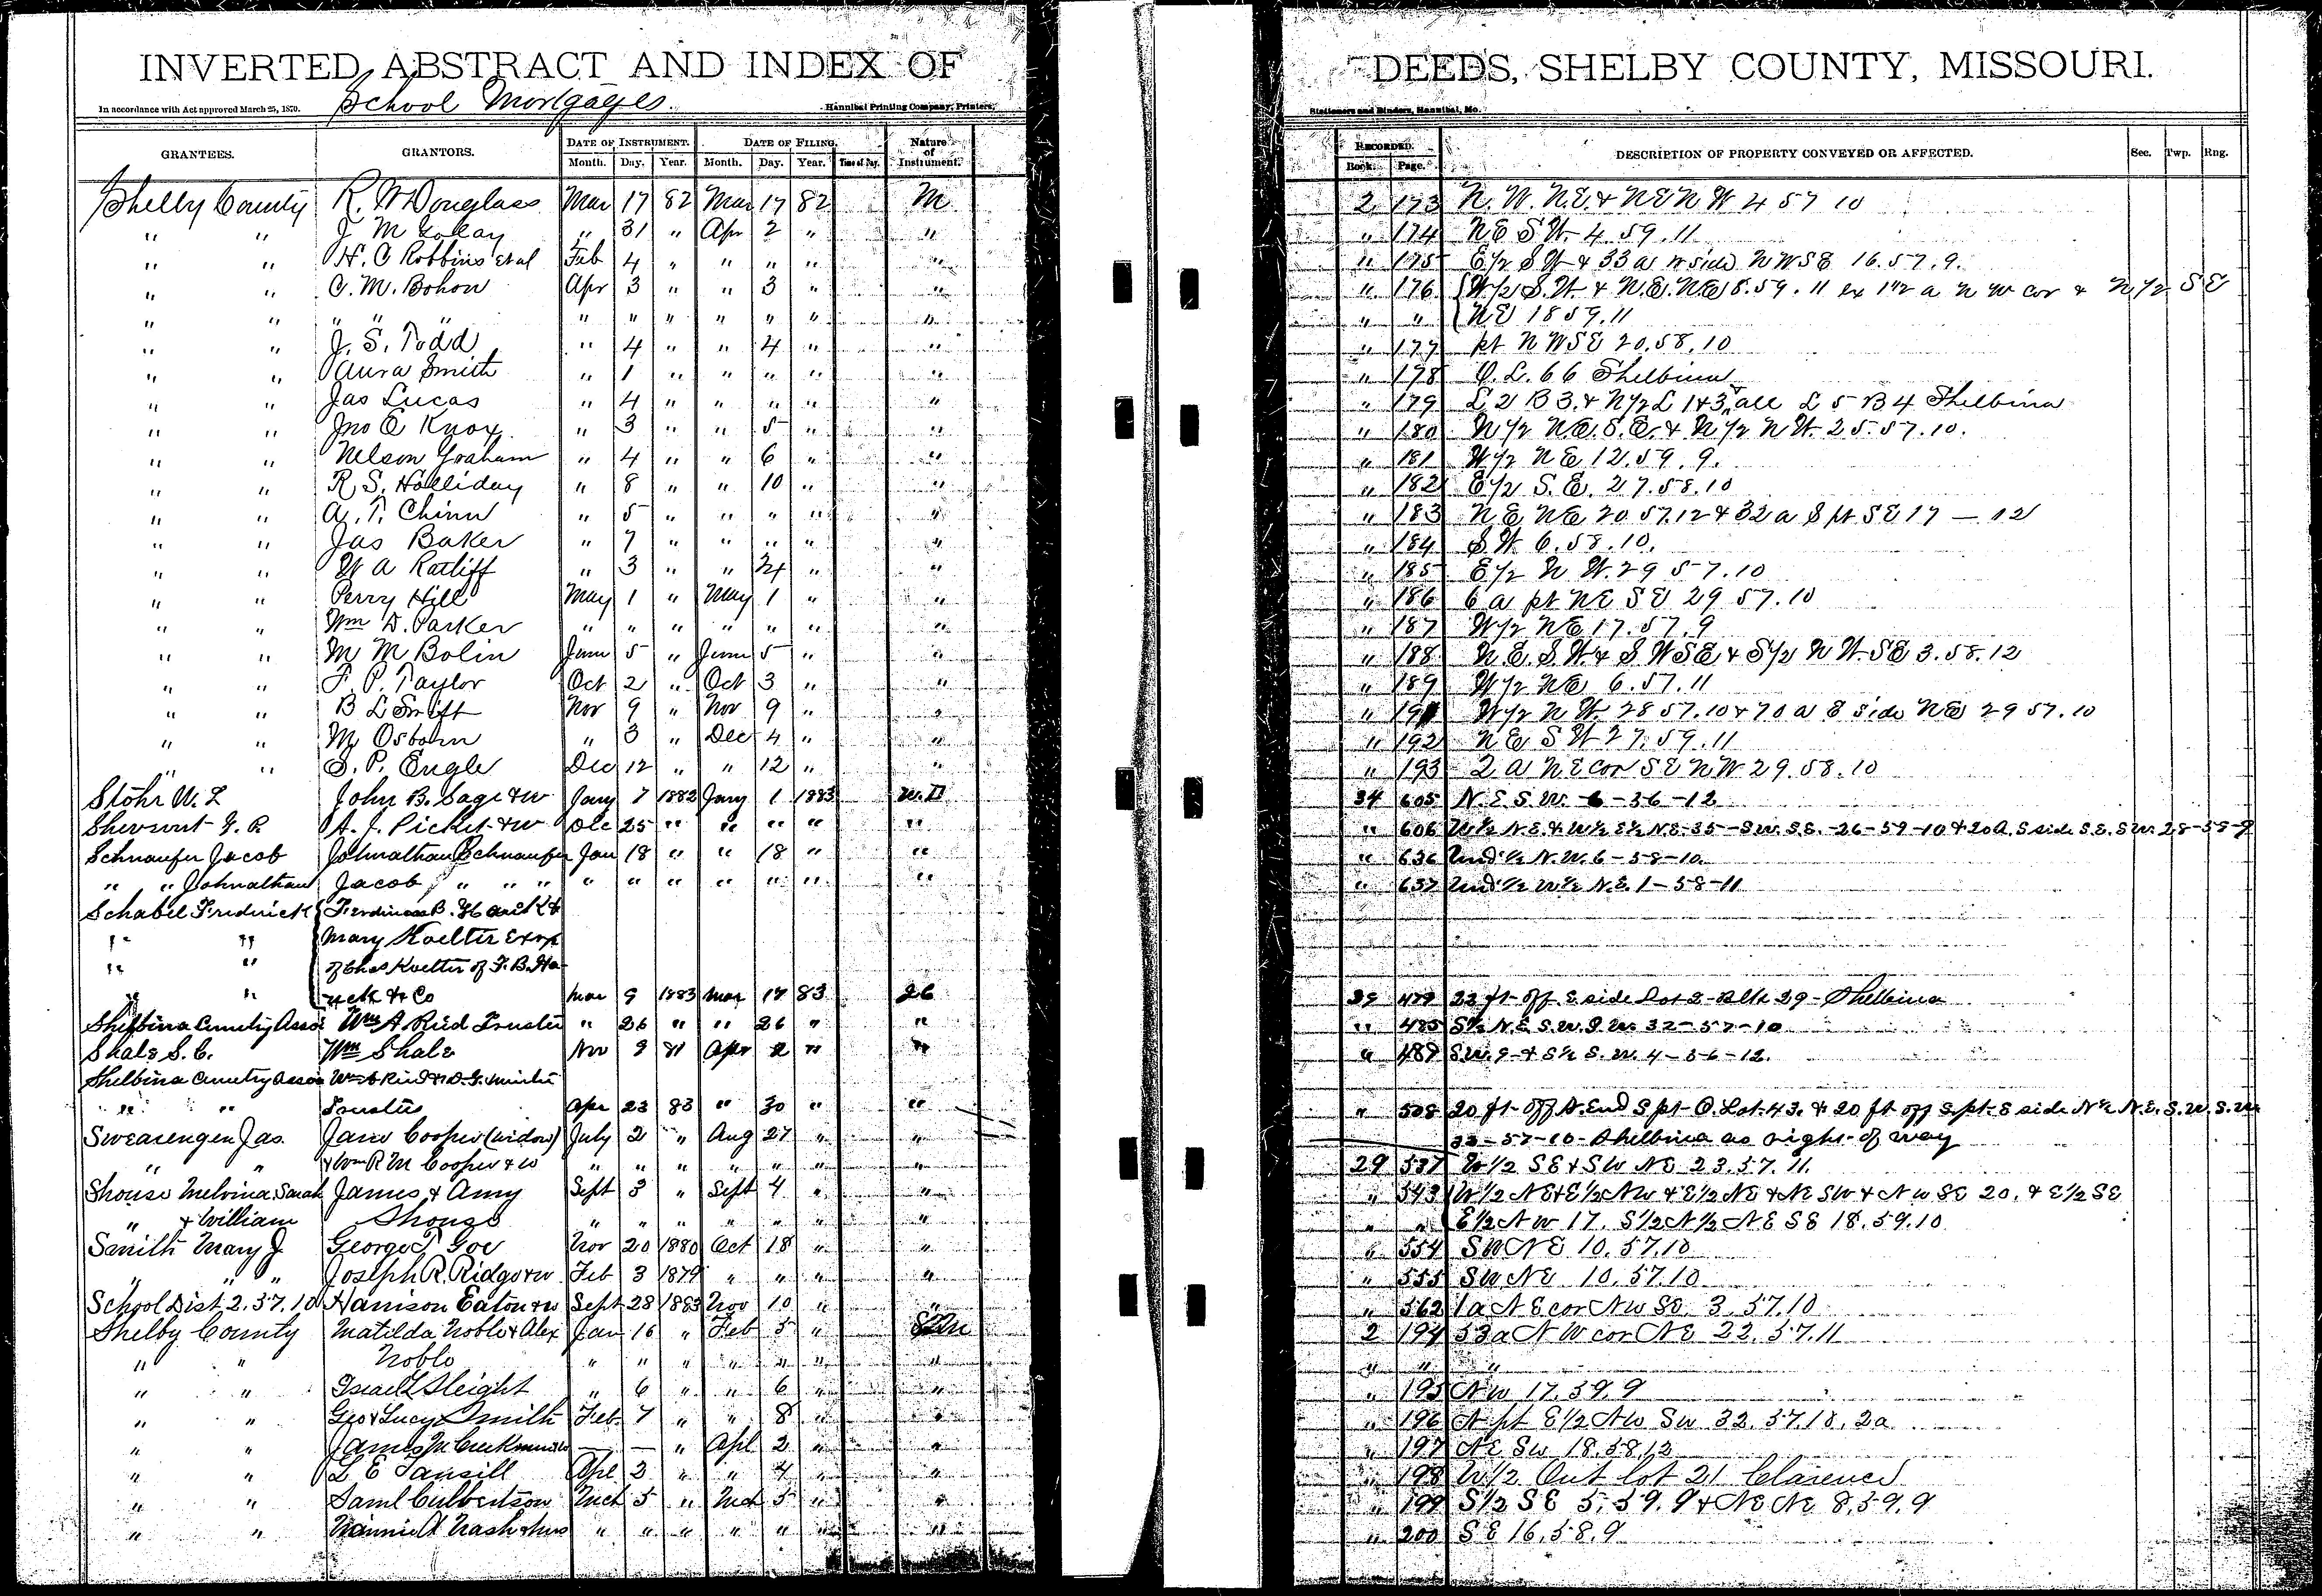 INVERTED ABSTRACT AND INDEX OF DEEDS, SHELBY COUNTY, MISSOURI.
School Mortgages.
In accordance with Act approved March 25, 1870. Hannibal Printing Company, Printers, Stationers and Binders, Hannibal, Mo.
GRANTEES. GRANTORS. DATE OF INSTRUMENT. DATE OF FILING. Nature of Instrument. RECORDED. DESCRIPTION OF PROPERTY CONVEYED OR AFFECTED. Sec. Twp. Rng.
Month. Day. Year. Month. Day. Year. Time of Day. Book. Page.
Shelby County R. W Douglass Mar 17 82 Mar 17 82 M 2 173 N. W. N.E. & NE N W 4 57 10
" " J M " 31 " Apr 2 " " " 174 NE S W. 4. 59. 11
" " H. C Robbins et al Feb 4 " " " " " " 175 E 1/2 S W & 33 a N side N W S E 16. 57. 9.
" " C. M. Bohon Apr 3 " " 3 " " " 176 W 1/2 S. W. & N. E. NE 8. 59. 11 ex 1 1/2 a N W cor & N 1/2 S E
" " " " " " " " " " " " " " " NE 18 59. 11
" " J. S. Todd " 4 " " 4 " " " 177 pt N W S E 20. 58. 10
" " Aura Smith " 1 " " " " " " 178 O. L. 66 Shelbina
" " Jas Lucas " 4 " " " " " " 179 L 2 B 3. & N 1/2 L 1 & 3, all L 5 B 4 Shelbina
" " Jno E Knox " 3 " " 5 " " " 180 N 1/2 N. E. S. E. & N 1/2 N W. 25. 57. 10.
" " Nelson Graham " 4 " " 6 " " " 181 W 1/2 N E 12. 59. 9.
" " R. S. Holliday " 8 " " 10 " " " 182 E 1/2 S. E. 27. 58. 10
" " A. T. Chinn " 5 " " " " " " 183 N E NE 20 57. 12 & 32 a S pt S E 17 — 12
" " Jas Baker " 7 " " " " " " 184 S. W. 6. 58. 10.
" " W A Ratliff " 3 " " 24 " " " 185 E 1/2 N W. 29 57. 10
" " Perry Hill May 1 " May 1 " " " 186 6 a pt NE S E 29 57. 10
" " Wm D. Parker " " " " " " " " 187 W 1/2 NE 17. 57. 9
" " M M Bolin June 5 " June 5 " " " 188 N. E. S. W. & S W S E & S 1/2 N W. S E 3. 58. 12
" " F. P. Taylor Oct 2 " Oct 3 " " " 189 W 1/2 NE 6. 57. 11
" " B L Smift Nov 9 " Nov 9 " " " 191 W 1/2 N W. 28 57. 10 & 70 a E side NE 29 57. 10
" " M. Osborn " 3 " Dec 4 " " " 192 N E S W 27. 59. 11
" " S. P. Engle Dec 12 " " 12 " " " 193 2 a N E cor S E N W 29. 58. 10
Stohr W. L John B. Sage & w Jany 7 1882 Jany 1 1883 W. D 34 605 N. E. S. W. 6-36-12
G. R A. J. Picket & w Dec 25 " " " " " " 606 W 1/2 N. E. & W 1/2 E 1/2 N. E. 35-S. W. S. E.-26-59-10 & 20 A. S side S. E. S. W. 28-58-9
Schnaufer Jacob Johnathan Schnaufer Jan 18 " " 18 " " " 636 Und 1/2 N. W. 6-58-10
" " Johnathan Jacob " " " " " " " " " " " " 637 Und 1/2 W 1/2 N. E. 1-58-11
Schabel Fredrick
" " Mary Koelter
" " of Chas Koelter of F. B. Ha-
" " & Co Mar 9 1883 Mar 17 83 26 479 22 ft off E side Lot 2 Blk 29-Shelbina
Shelbina Cemetry Assoc Wm A Reid Trustee " 26 " " 26 " " " 485 S 1/2 N. E. S. W. S. W. 32-57-10
Shale S. C. Wm Shale Nov 9 81 Apr 2 " " " 487 S. W. 9 & S 1/2 S. W. 4-56-12.
Shelbina Cemetry Assoc Wm A Reid & D. G. Minter
" " Trustees Apr 23 83 " 30 " " " 508 20 ft off N. End S pt O. Lot 43. & 20 ft off S. pt. E side N 1/2 N. E. S. W. S. W.
32-57-10-Shelbina as right of way
Swearengen Jas. Jane Cooper (widow) July 2 " Aug 27 " "
" " & Wm R M Cooper & w " " " " " " " 29 537 W 1/2 SE & SW NE 23. 57. 11.
Shouse Melvina, Sarah James & Amy Sept 3 " Sept 4 " " " 543 W 1/2 NE & E 1/2 NW & E 1/2 NE & NE SW & NW SE 20. & E 1/2 SE
" & William Shouse " " " " " " " " " E 1/2 NW 17. S 1/2 N 1/2 NE SE 18. 59. 10
Smith Mary J. George T Goe Nov 20 1880 Oct 18 " " " 554 SW NE 10. 57. 10
" " " Joseph R. Ridge & w Feb 3 1879 " " " " " 555 SW NE 10. 57. 10
School Dist 2. 57. 10 Harrison Eaton & w Sept 28 1883 Nov 10 " " " 562 1 a NE cor NW SE. 3. 57. 10
Shelby County Matilda Noble & Alex Jan 16 " Feb 5 " 2 194 53 a N W cor NE 22. 57. 11
" " Noble " " " " " " " " " "
" " Israel Sleight " 6 " " 6 " " " 195 NW 17. 59. 9
" " Geo & Lucy Smith Feb 7 " " 8 " " " 196 N pt E 1/2 NW SW 32. 57. 10. 2a
" " James M — — " Apl 2 " " " 197 NE SW 18. 58. 12
" " L E Tansill Apl 2 " " 4 " " " 198 W 1/2 Out lot 21 Clarence
" " Saml Culbertson Mch 5 " Mch 5 " " " 199 S 1/2 SE 5. 59. 9 & NE NE 8. 59. 9
" " Nannie A Nash & hus " " " " " " " " 200 SE 16. 58. 9